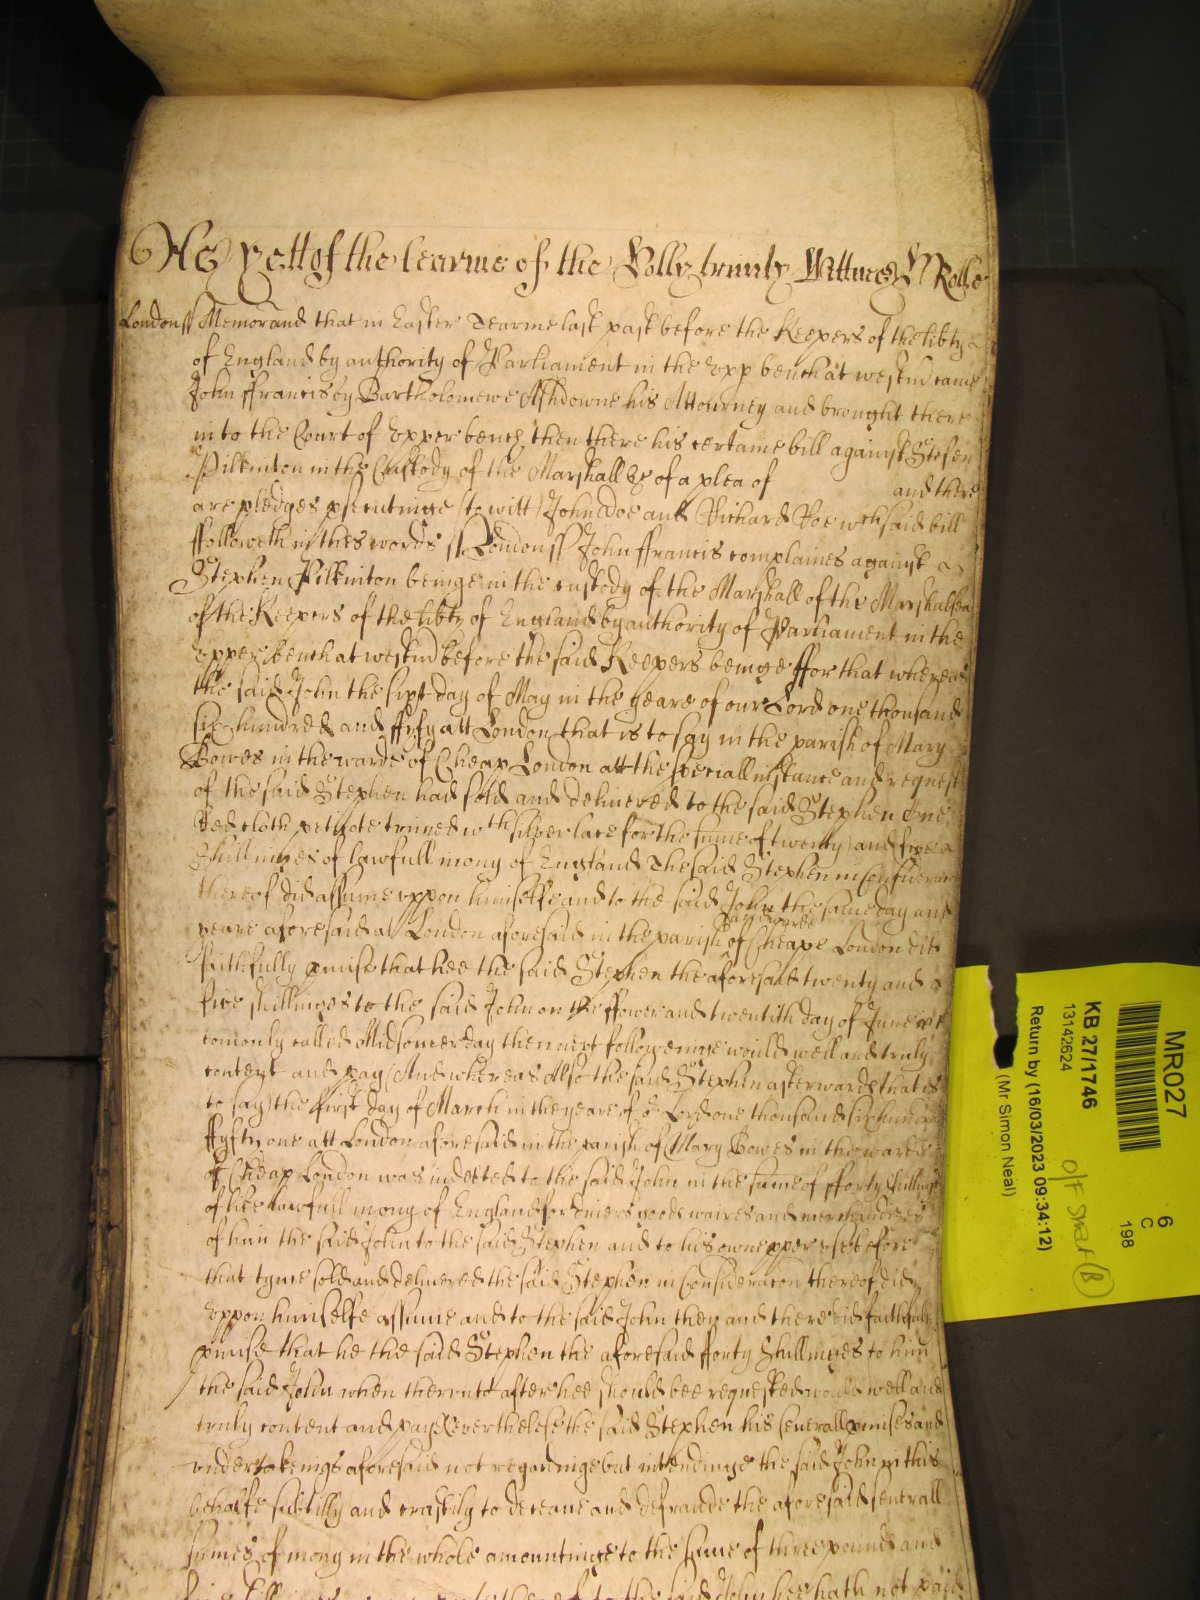 Yett of the tearme of the Holly trinity Wittnes H Rolle
Londonss Memorand that in Easter Tearme last past before the Keepers of the libty
of England by authority of Parliament in the Vpp bench at westm came
John ffrancis by Bartholomewe Ashdowne his Attourney and brought there
into the Court of Vpper bench then there his certaine bill against Stefen
Pilkinton in the Custody of the Marshall &c of a plea of and there
are pledges psecutinge (to witt) John Doe and Richard Roe wch said bill
ffolloweth in thes words ss Londonss John ffrancis complaines against
Stephen Pilkinton beinge in the custody of the Marshall of the Marshalsea
of the Keepers of the libty of England by authority of Parliament in the
Vpper bench at westm before the said Keepers beinge ffor that whereas
the said John the sixt day of May in the yeare of our Lord one thousand
six hundred and ffyfty att London that is to say in the parish of Mary
Bowes in the warde of Cheap London att the speciall instance and request
of the said Stephen had sold and delivered to the said Stephen one
Red cloth peticote trimed wth silver lace for the sume of twenty and five
shillinges of lawfull mony of England The said Stephen in Consideracon
thereof did assume vppon himselfe and to the said John the same day and
yeare aforesaid at London aforesaid in the parish of Cheape London did
and warde
faithfully pmise that hee the said Stephen the aforesaid twenty and
five shillinges to the said John on the ffower and twentith day of June
comonly called Midsomer day then next followeinge would well and truly
content and pay And whereas Also the said Stephen afterwards that is
to say the first day of March in the yeare of or Lord one thousand six hundred
ffyfty one att London aforesaid in the parish of Mary Bowes in the warde
of Cheap London was indebted to the said John in the sume of fforty shillings
of like lawfull mony of England for divers goods waires and merchandizes
of him the said John to the said Stephen and to his owne pper vse before
that tyme sold and delivered the said Stephen in Consideracon thereof did
Vppon himselfe assume and to the said John then and there did faithfully
pmise that he the said Stephen the aforesaid fforty shillinges to him
the said John when therevnto after hee should bee requested would well and
truly content and pay Neverthelesse the said Stephen his severall pmises and
vndertakeings aforesaid not regardinge but intendinge the said John in this
behalfe subtilly and craftily to deceave and defraude the aforesaid severall
sumes of mony in the whole amountinge to the sume of three pounds and
five shillinges to the said John hee hath not paid
MR027
6
C
198
KB 27/1746
13142624
O/F Street (B)
Return by (16/03/2023 09:34:12)
(Mr Simon Neal)